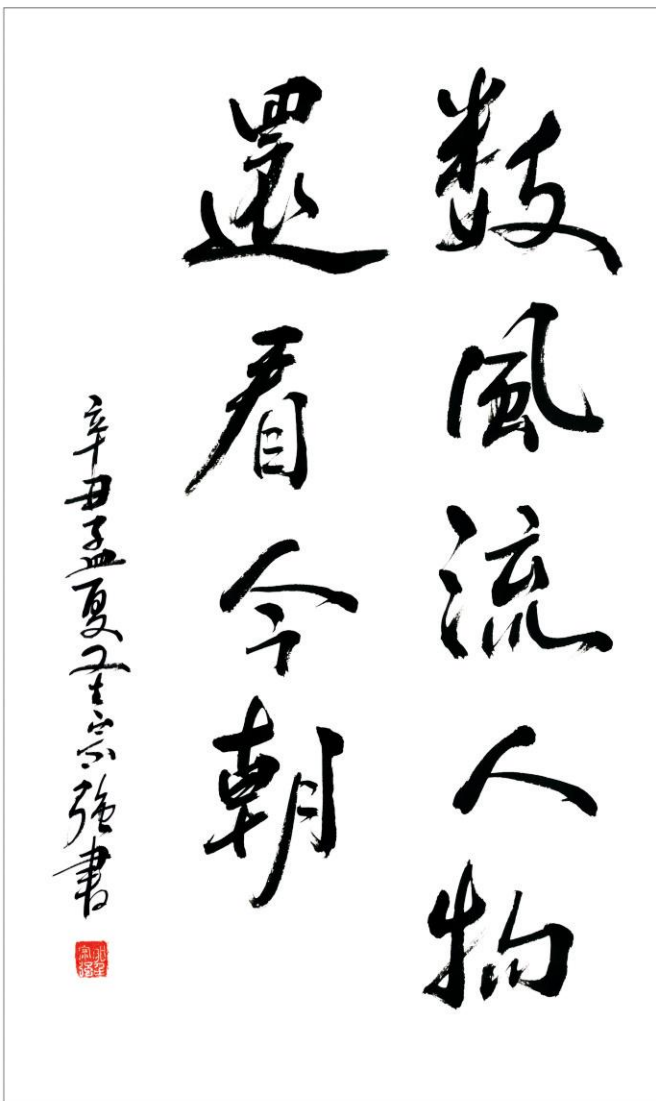 数風流人物
還看今朝
辛丑孟夏宗強書